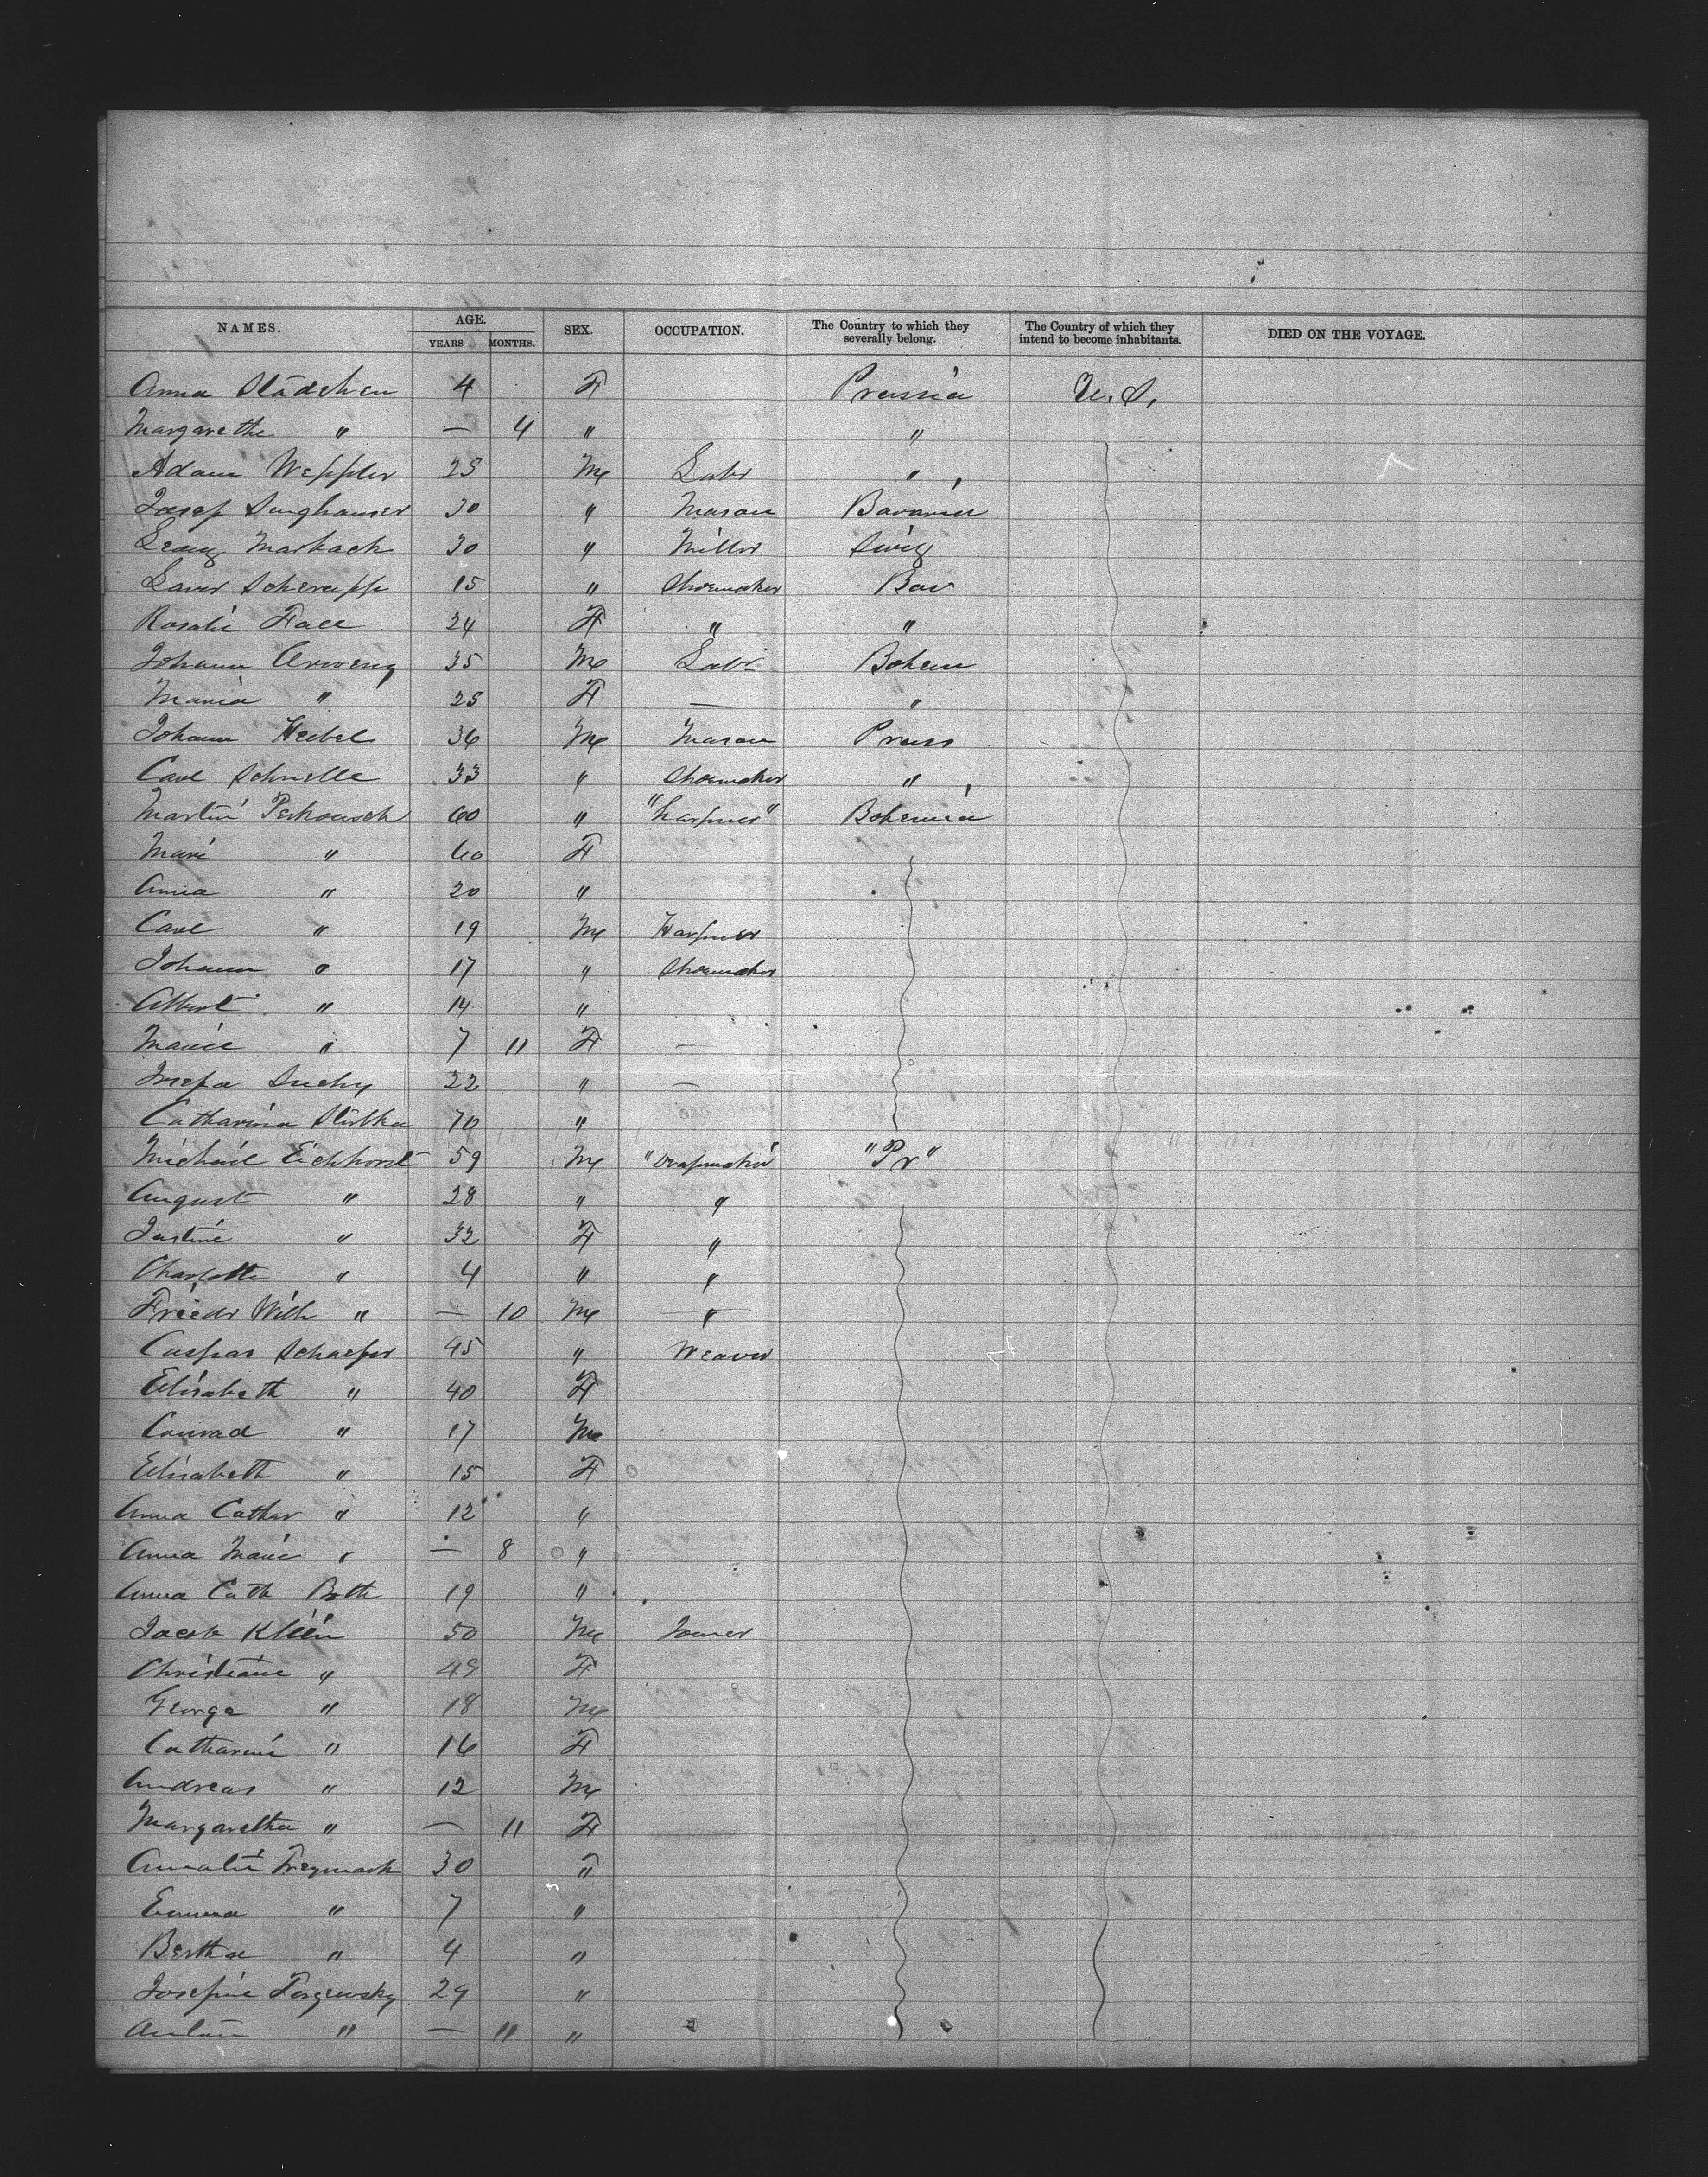 NAMES. AGE. YEARS MONTHS. SEX. OCCUPATION. The Country to which they severally belong. The Country of which they intend to become inhabitants. DIED ON THE VOYAGE.
Anna Städchen 4 F Prussia U. S.
Margarethe " — 4 " "
Adam Weppler 25 M Labr "
Josep Senghauser 30 " Mason Bavaria
Marbach 30 " Miller Switz
Schrapp 15 " Shoemaker Bav
Rosalie 24 F " "
Johann 35 M Labr Bohem
Maria " 25 F — "
Johann Heibel 36 M Mason Pruss
Carl Schnelle 33 " Shoemaker "
Martin 60 " " " Bohemia
Marie " 60 F
Anna " 20 "
Carl " 19 M
Johann " 17 " Shoemaker
Albert " 14 "
Marie " 7 11 F —
Josepa Suchy 22 " —
Catharina 70 "
Michael Eichhorst 59 M " " "Pr"
August " 28 " "
Justine " 32 F "
Charlotte " 4 " "
Friedr Wilh " — 10 M "
Caspar Schaefer 45 " Weaver
Elisabeth " 40 F
Conrad " 17 M
Elisabeth " 15 F
Anna Cathar " 12 "
Anna Marie " — 8 "
Anna Cath Both 19 "
Jacob Klein 50 M
Christiane " 49 F
George " 18 M
Catharine " 16 F
Andreas " 12 M
Margaretha " — 11 F
Amalie 30 "
Emma " 7 "
Bertha " 4 "
Josefine 29 "
" — 11 "